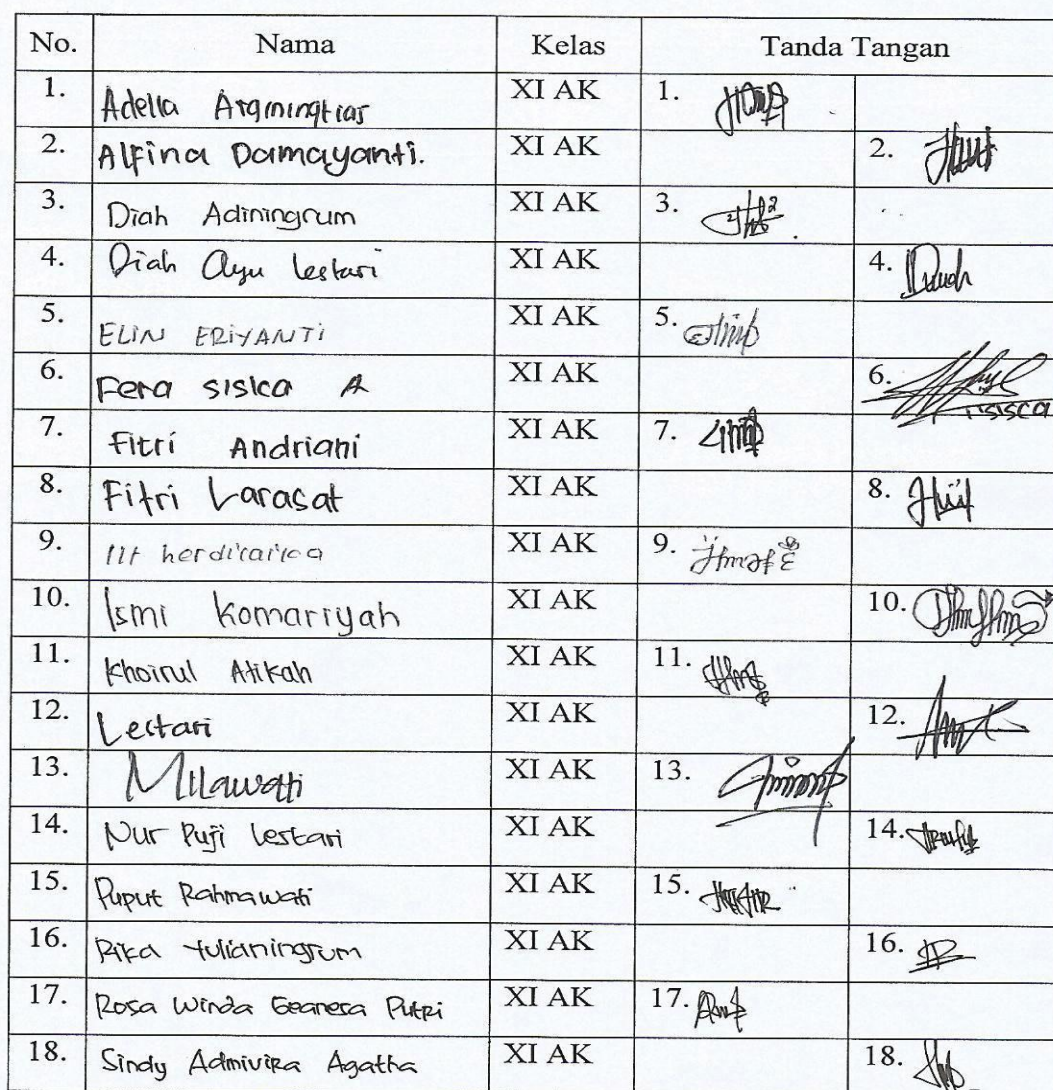 No. Nama Kelas Tanda Tangan
1. Adella Argmingtias XI AK 1.
2. Alfina Damayanti. XI AK 2.
3. Diah Adiningrum XI AK 3.
4. Diah Ayu Lestari XI AK 4.
5. ELIN ERIYANTI XI AK 5.
6. Fera siska A XI AK 6. SISCA
7. Fitri Andriani XI AK 7.
8. Fitri Larasat XI AK 8.
9. XI AK 9.
10. Ismi Komariyah XI AK 10.
11. Khoirul Atikah XI AK 11.
12. Lestari XI AK 12.
13. Milawati XI AK 13.
14. Nur Puji Lestari XI AK 14.
15. Puput Rahmawati XI AK 15.
16. Rika Yulianingrum XI AK 16.
17. Rosa Winda Geanesa Putri XI AK 17.
18. Sindy Admivira Agatha XI AK 18.